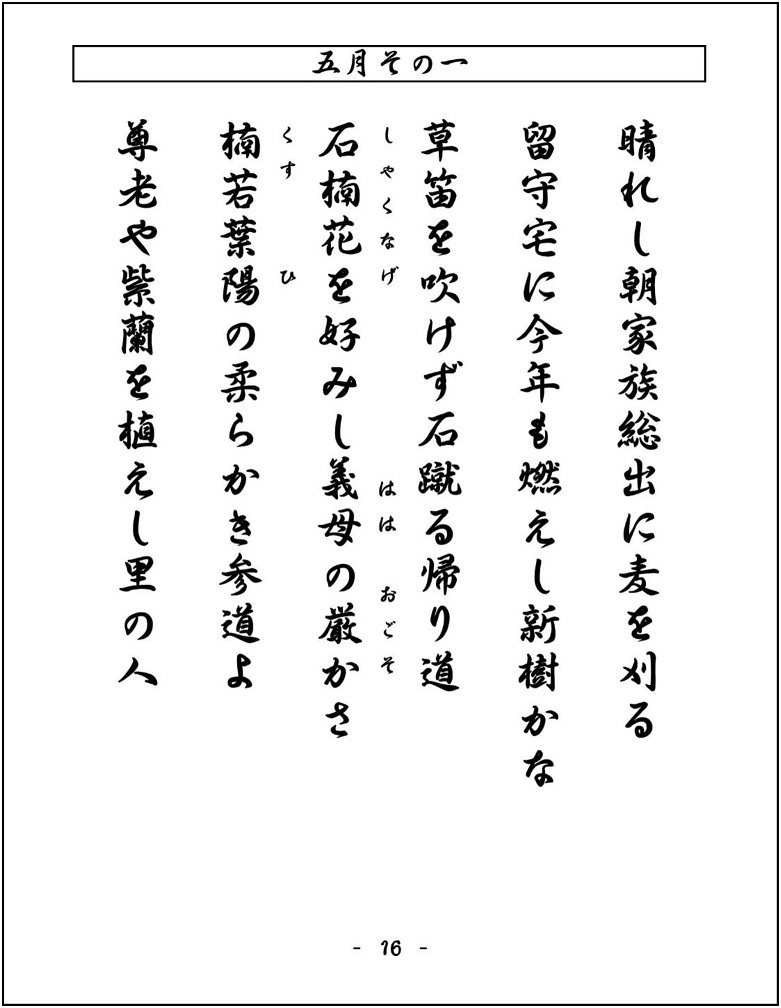 五月その一
晴れし朝家族総出に麦を刈る
留守宅に今年も燃えし新樹かな
草笛を吹けず石蹴る帰り道
しゃくなげ はは おごそ
石楠花を好みし義母の厳かさ
くす ひ
楠若葉陽の柔らかき参道よ
尊老や紫蘭を植えし里の人
- 16 -